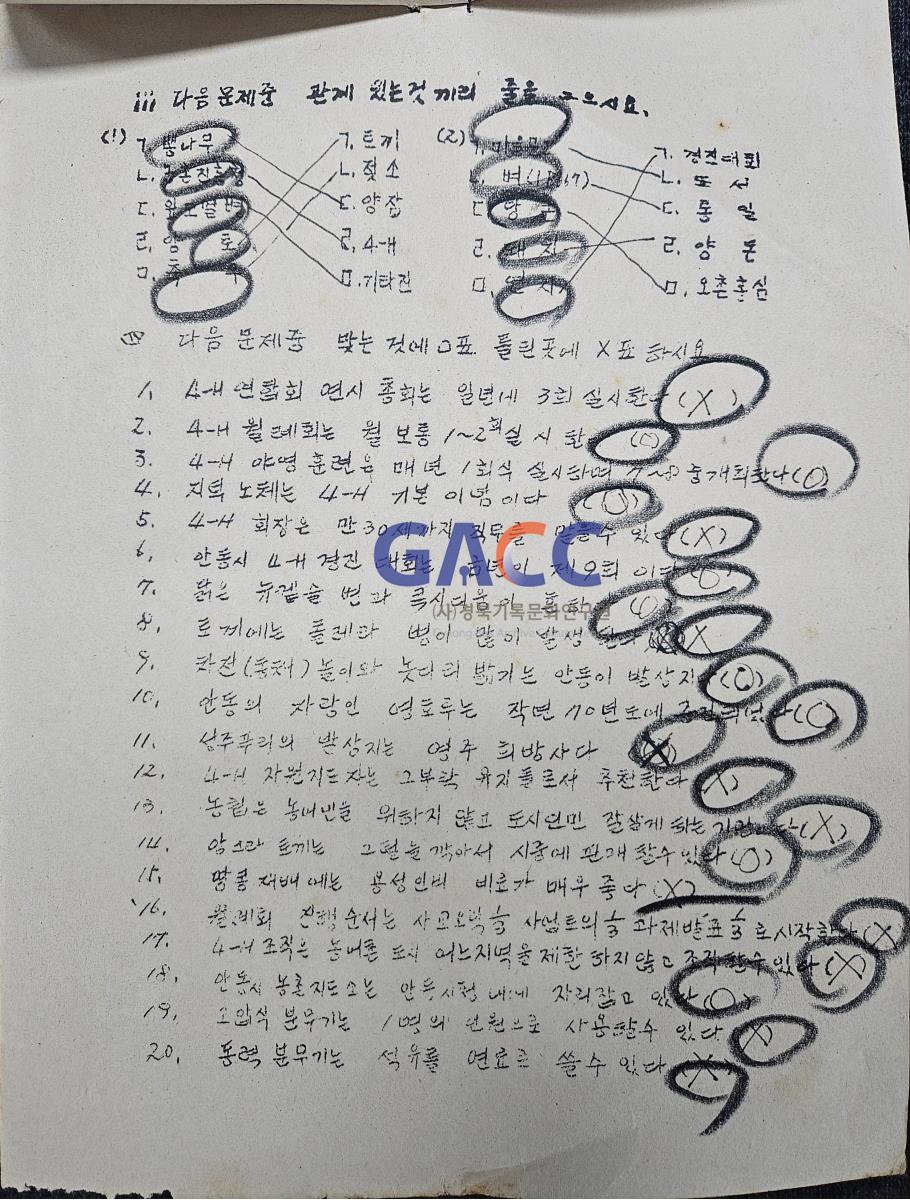 iii 다음 문제중 관계 있는것 끼리 줄을 그으시요.
(1) ㄱ. 뽕나무 ㄱ. 토끼 (2) ㄱ. ㄱ. 경진대회
ㄴ. ㄴ. 젖소 ㄴ. 변 ㄴ. 도서
ㄷ. ㄷ. 양잠 ㄷ. ㄷ. 통일
ㄹ. ㄹ. 4-H ㄹ. 돼지 ㄹ. 양돈
ㅁ. ㅁ. 기타진 ㅁ. ㅁ. 오촌흥심
四 다음 문제중 맞는 것에 O표 틀린곳에 X표 하시요
1. 4-H 연합회 연시 총회는 일년에 3회 실시한다 (X)
2. 4-H 월례회는 월 보통 1~2회 실시 한다 (O)
3. 4-H 야영 훈련은 매년 1회식 실시하며 7~8 중 개최한다 (O)
4. 지덕 노체는 4-H 기본 이념이다 (O)
5. 4-H 회장은 만 30세까지 직무를 맡을수 있다 (X)
6. 안동시 4-H 경진 대회는 금년이 제9회 이다 (O)
7. 닭은 뉴켓슬 변과 콕시듐 (O)
8. 토끼에는 콜레라 병이 많이 발생 한다 (X)
9. 차전(동채)놀이와 놋다리 밟기는 안동이 발상지 (O)
10. 안동의 자랑인 영호루는 작년 70년도에 (O)
11. 성주푸리의 발상지는 영주 희방사다 (X)
12. 4-H 자원지도자는 그부락 유지들로서 추천한다 (X)
13. 농협은 농어민을 위하지 않고 도시민만 잘살게 하는 기관이다 (X)
14. 앙고라 토끼는 그털을 깍아서 시중에 판매 할수있다 (O)
15. 땅콩재배에는 용성인비 비료가 매우 좋다 (X)
16. 월례회 진행순서는 사교오락을 사업토의를 과제발표를 로 시작한다 (X)
17. 4-H 조직은 농어촌 도시 어느지역을 제한 하지않고 조직할수 있다 (X)
18. 안동시 농촌지도소는 안동시청 내에 자리잡고 있다 (O)
19. 고압식 분무기는 1명의 인원으로 사용할수 있다 (X)
20. 동력 분무기는 석유를 연료로 쓸수 있다 (X)
GACC
(사)경북기록문화연구원